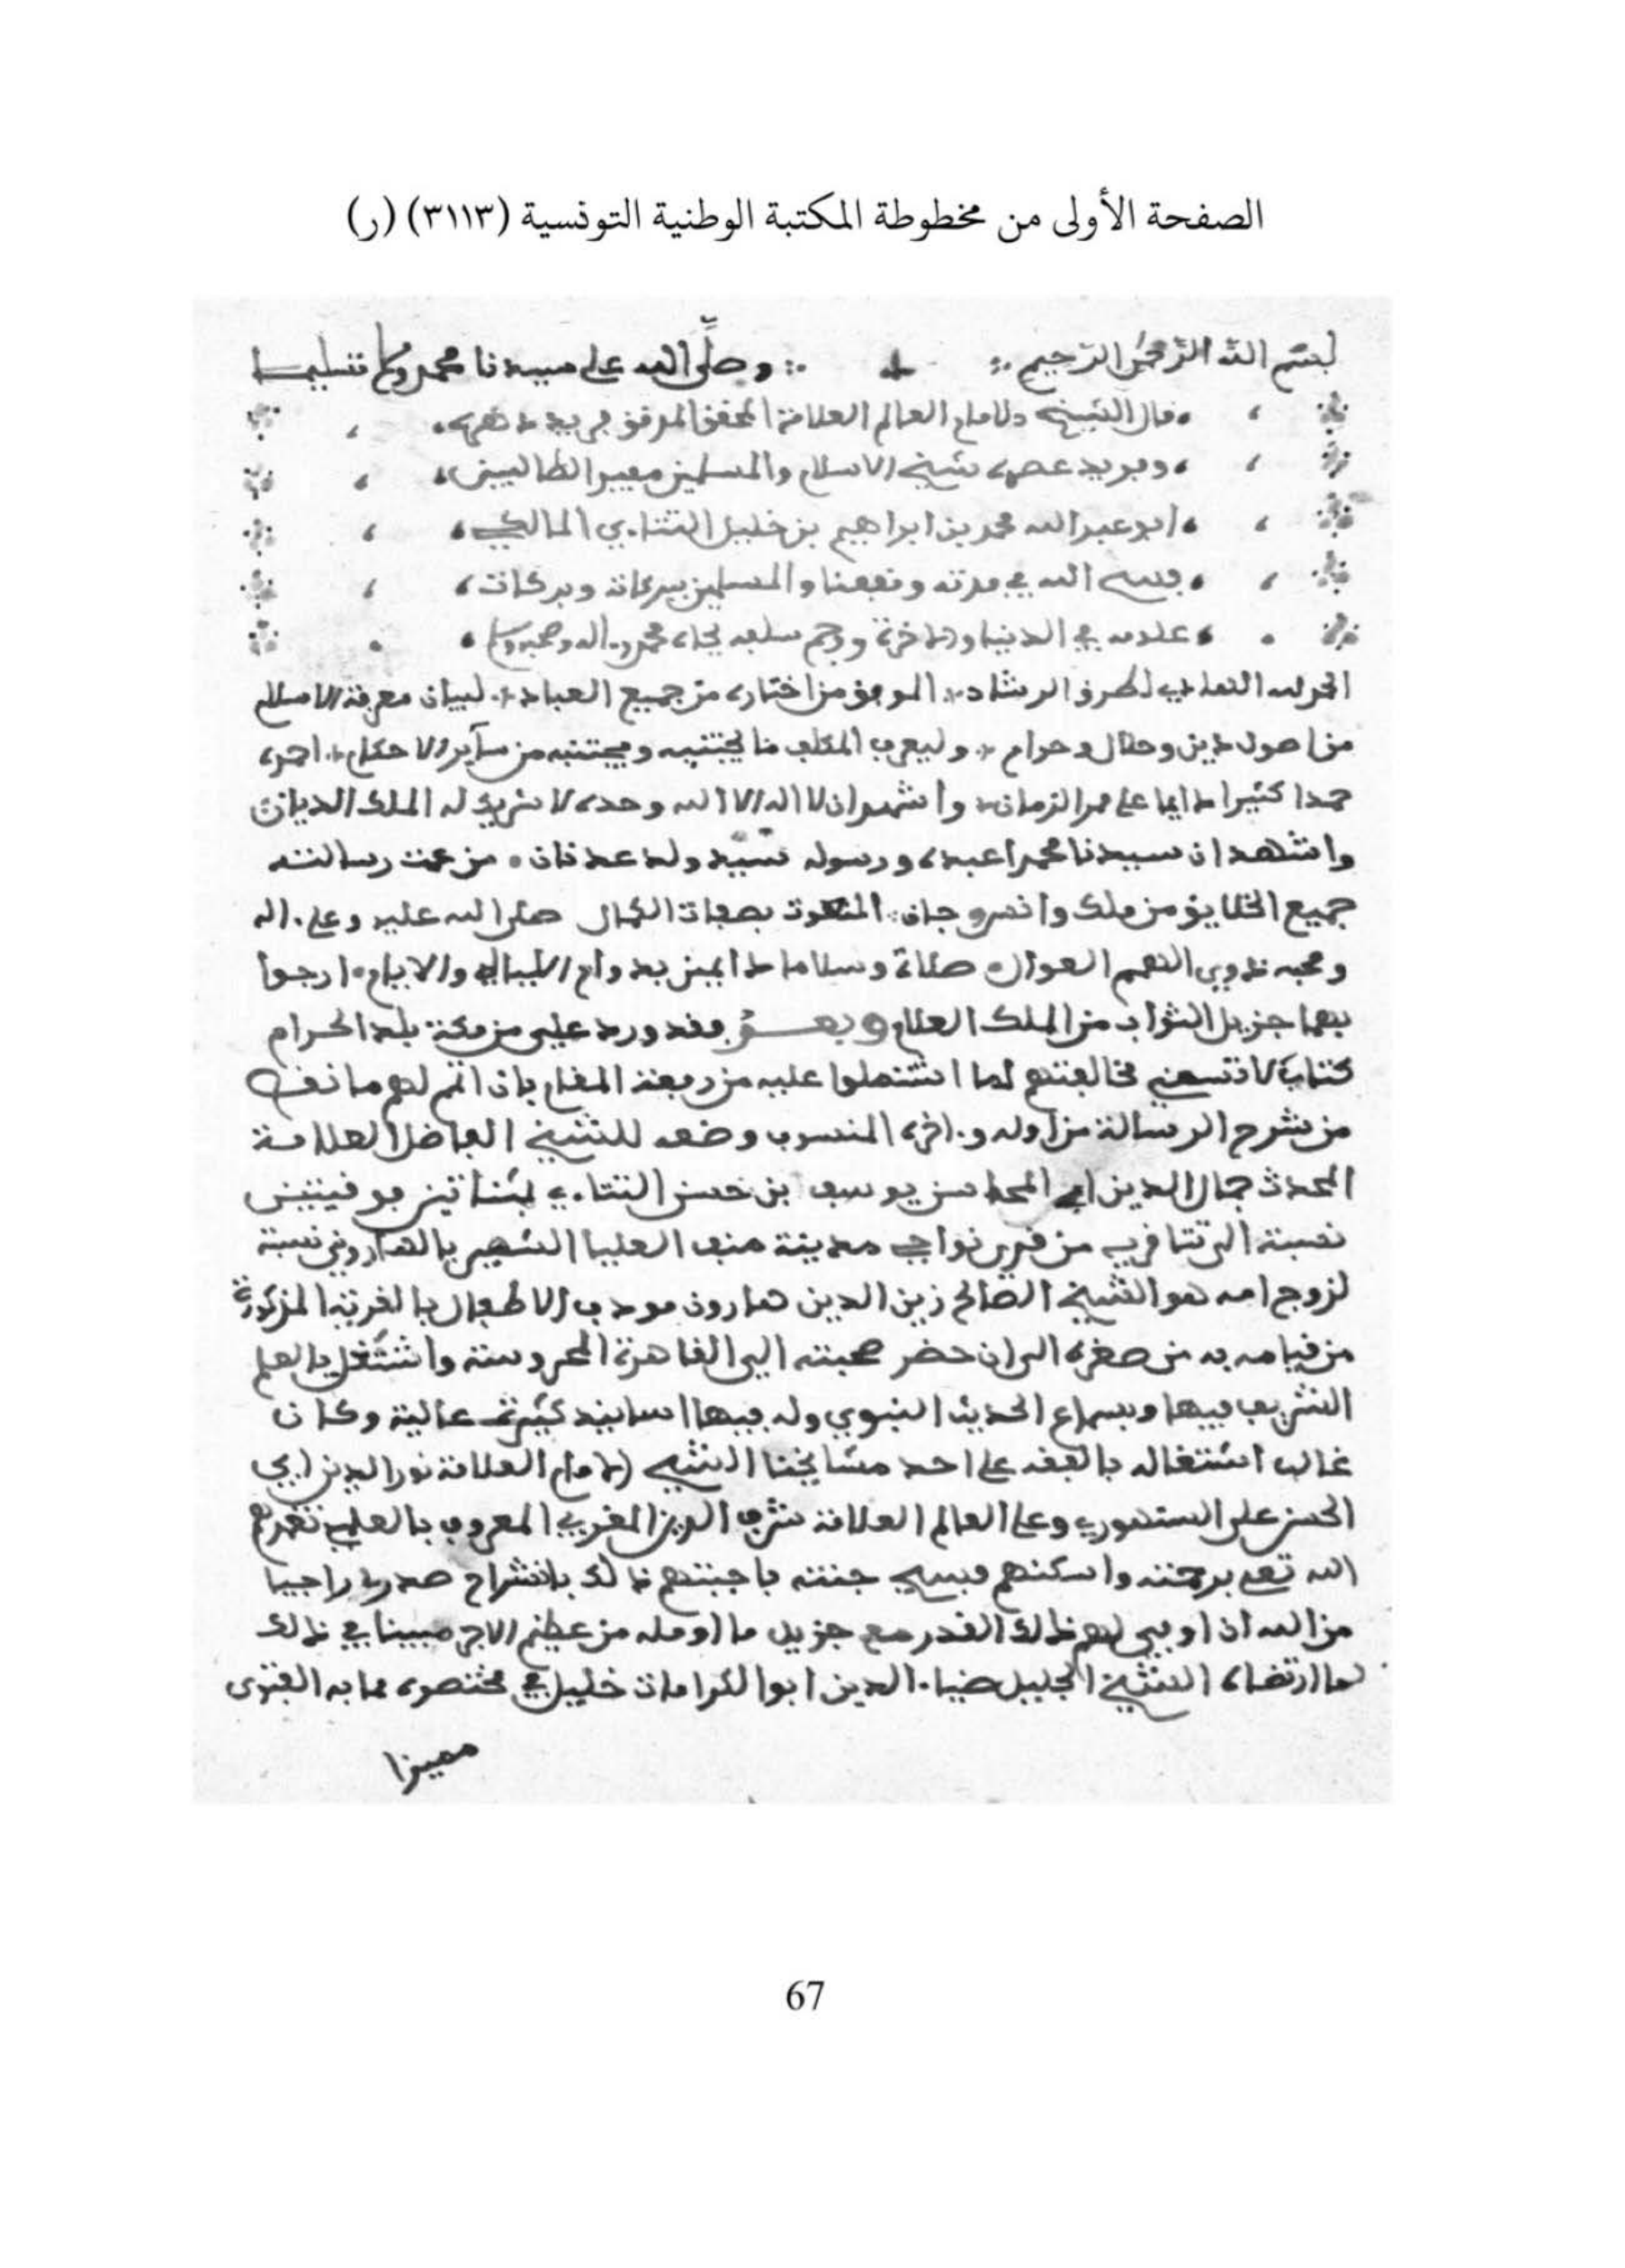 الصفحة الأولى من مخطوطة المكتبة الوطنية التونسية (٣١١٣) (ر)
بسم الله الرحمن الرحيم وصلى الله على سيدنا محمد وسلم تسليما
قال الشيخ الامام العالم العلامة المحقق المدقق فريد دهره
ووحيد عصره شيخ الاسلام والمسلمين معين الطالبين
ابو عبد الله محمد بن ابراهيم بن خليل التتاءي المالكي
فسح الله في مدته ونفعنا والمسلمين ببركاته وبركات
علومه في الدنيا والاخرة ورحم سلفه بجاه محمد وءاله وصحبه وسلم
الحمد لله الهادي لطرق الرشاد الموفق من اختاره من جميع العباد لبيان معرفة الاسلام
من اصول دين وحلال وحرام وليعرف المكلف ما يجتنيه ويجتنبه من سآير الاحكام احمده
حمدا كثيرا دايما على ممر الزمان واشهد ان لا اله الا الله وحده لا شريك له الملك الديان
واشهد ان سيدنا محمدا عبده ورسوله سيد ولد عدنان من عمت رسالته
جميع الخلايق من ملك وانس وجان المنعوت بصفات الكمال صلى الله عليه وعلى ءاله
وصحبه ذوي الهمم العوال صلاة وسلاما دايمين بدوام الليالي والايام ارجوا
بهما جزيل الثواب من الملك العلام وبعد فقد ورد علي من مكة بلد الحرام
كتاب لا تسعني مخالفتهم لما اشتملوا عليه من رفعة المقام بان اتمم لهم ما نقص
من شرح الرسالة من اوله وءاخره المنسوب وضعه للشيخ الفاضل العلامة
المحدث جمال الدين ابي المحاسن يوسف بن حسن التتاءي بمثناتين فوقيتين
نسبة الى تتا قرية من قرى نواحي مدينة منف العليا الشهير بالهاروني نسبة
لزوج امه هو الشيخ الصالح زين الدين هارون مودب الاطفال بالقرية المذكورة
من قيامه به من صغره الى ان حضر صحبته الى القاهرة المحروسة واشتغل بالعلم
الشريف فيها وبسماع الحديث النبوي وله فيها اسانيد كثيرة عالية وكان
غالب اشتغاله بالفقه على احد مشايخنا الشيخ الامام العلامة نور الدين ابي
الحسن علي السنهوري وعلى العالم العلامة شرف الدين المغربي المعروف بالعلمي تغمدهم
الله تعلى برحمته واسكنهم فسيح جنته فاجبتهم ذالك بانشراح صدر راجيا
من الله ان اوفي لهم ذالك القدر مع جزيل ما اومله من عظيم الاجر مبينا في ذالك
لما ارتضاه الشيخ الجليل ضياء الدين ابو الكرامات خليل في مختصره مما به الفتوى
مميزا
67